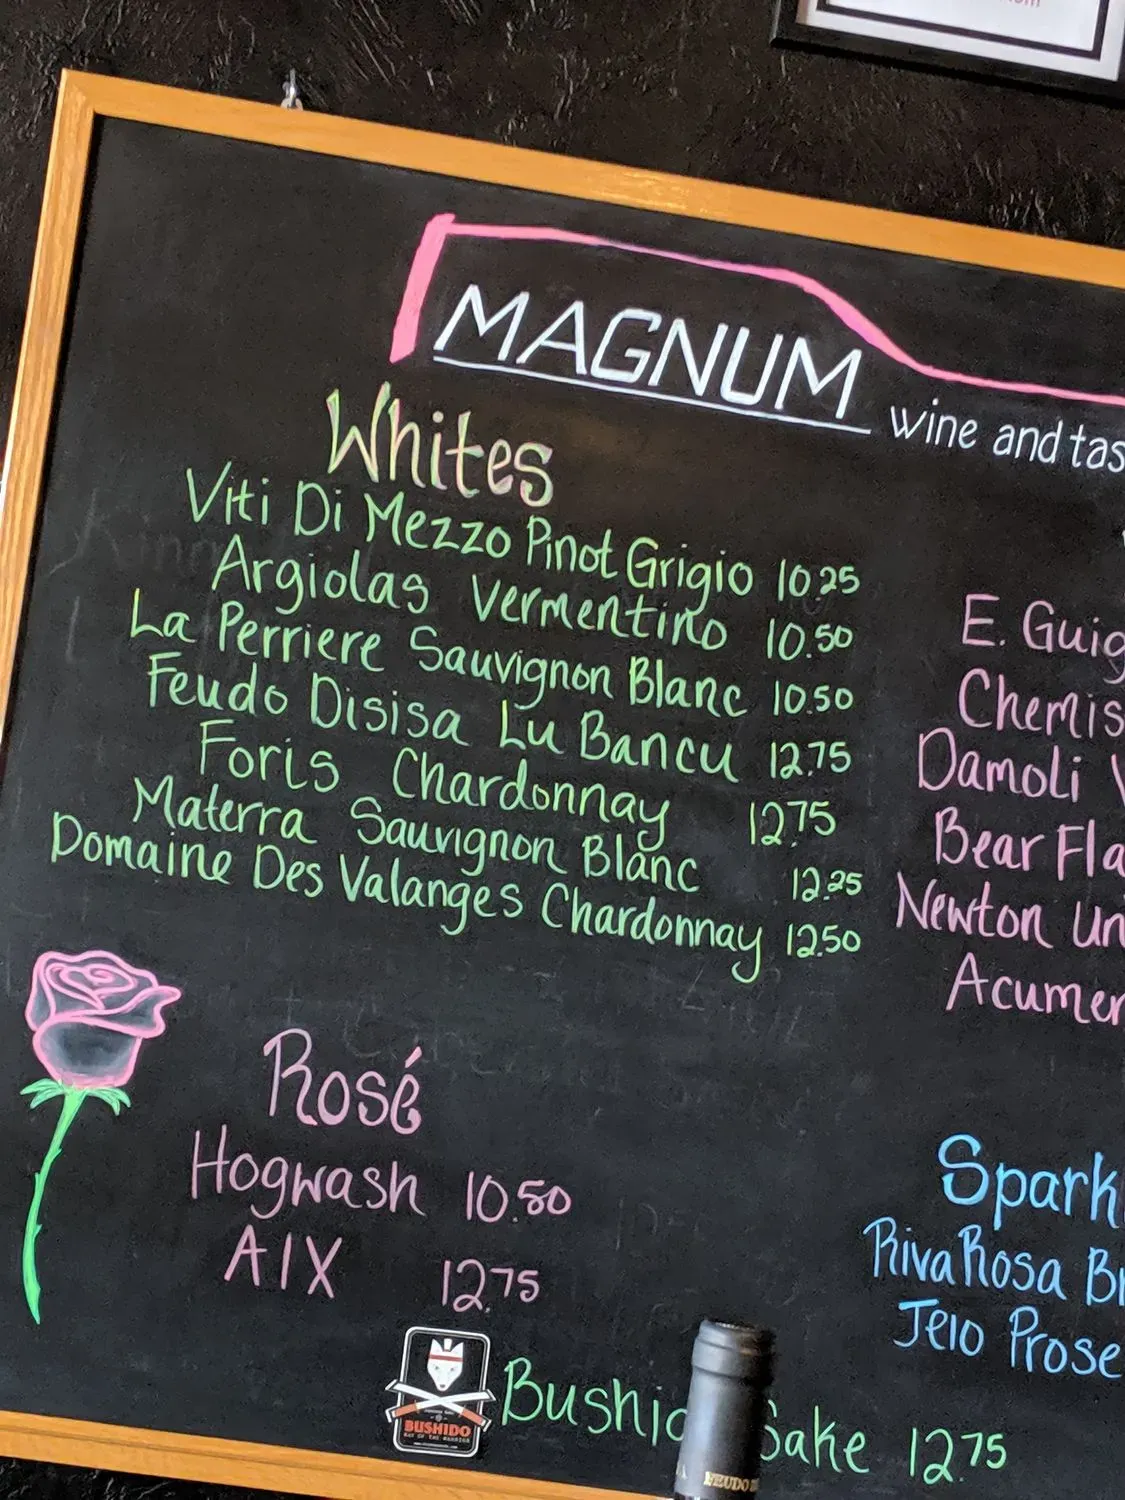 MAGNUM wine and tas
Whites
Viti Di Mezzo Pinot Grigio 10.25
Argiolas Vermentino 10.50
La Perriere Sauvignon Blanc 10.50
Feudo Disisa Lu Bancu 12.75
Foris Chardonnay 12.75
Materra Sauvignon Blanc 12.25
Domaine Des Valanges Chardonnay 12.50
E. Guig
Chemis
Damoli V
Bear Fla
Newton Un
Acumen
Rosé
Hogwash 10.50
AIX 12.75
Spark
RivaRosa Br
Jeio Prose
BUSHIDO
WAY OF THE WARRIOR
Bushido Sake 12.75
FEUDO